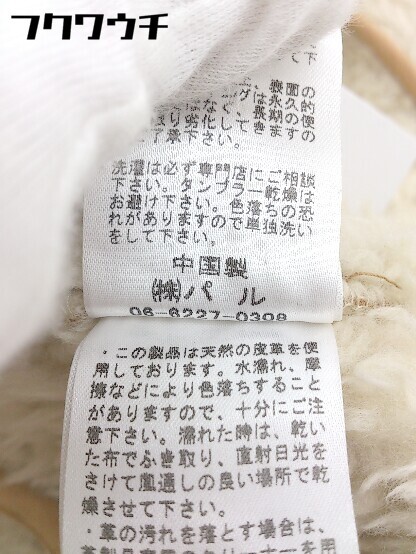 フクワウチ
て下
の的便
、裹囲久の
グは永期ま
はなく、長き
り劣化して
了承下さい。
洗濯は必ず専門店にご相談
下さい。タンブラー乾燥は
お避け下さい。色落ちの恐
れがありますので単独洗い
をして下さい。
中国製
㈱パル
06-6227-0308
・この製感は天然の皮革を使
用しております。水濡れ、摩
擦などにより色落ちすること
がありますので、十分にご注
意下さい。濡れた時は、乾い
た布でふき取り、直射日光を
さけて風通しの良い場所で乾
燥させて下さい。
・革の汚れを落とす場合は、